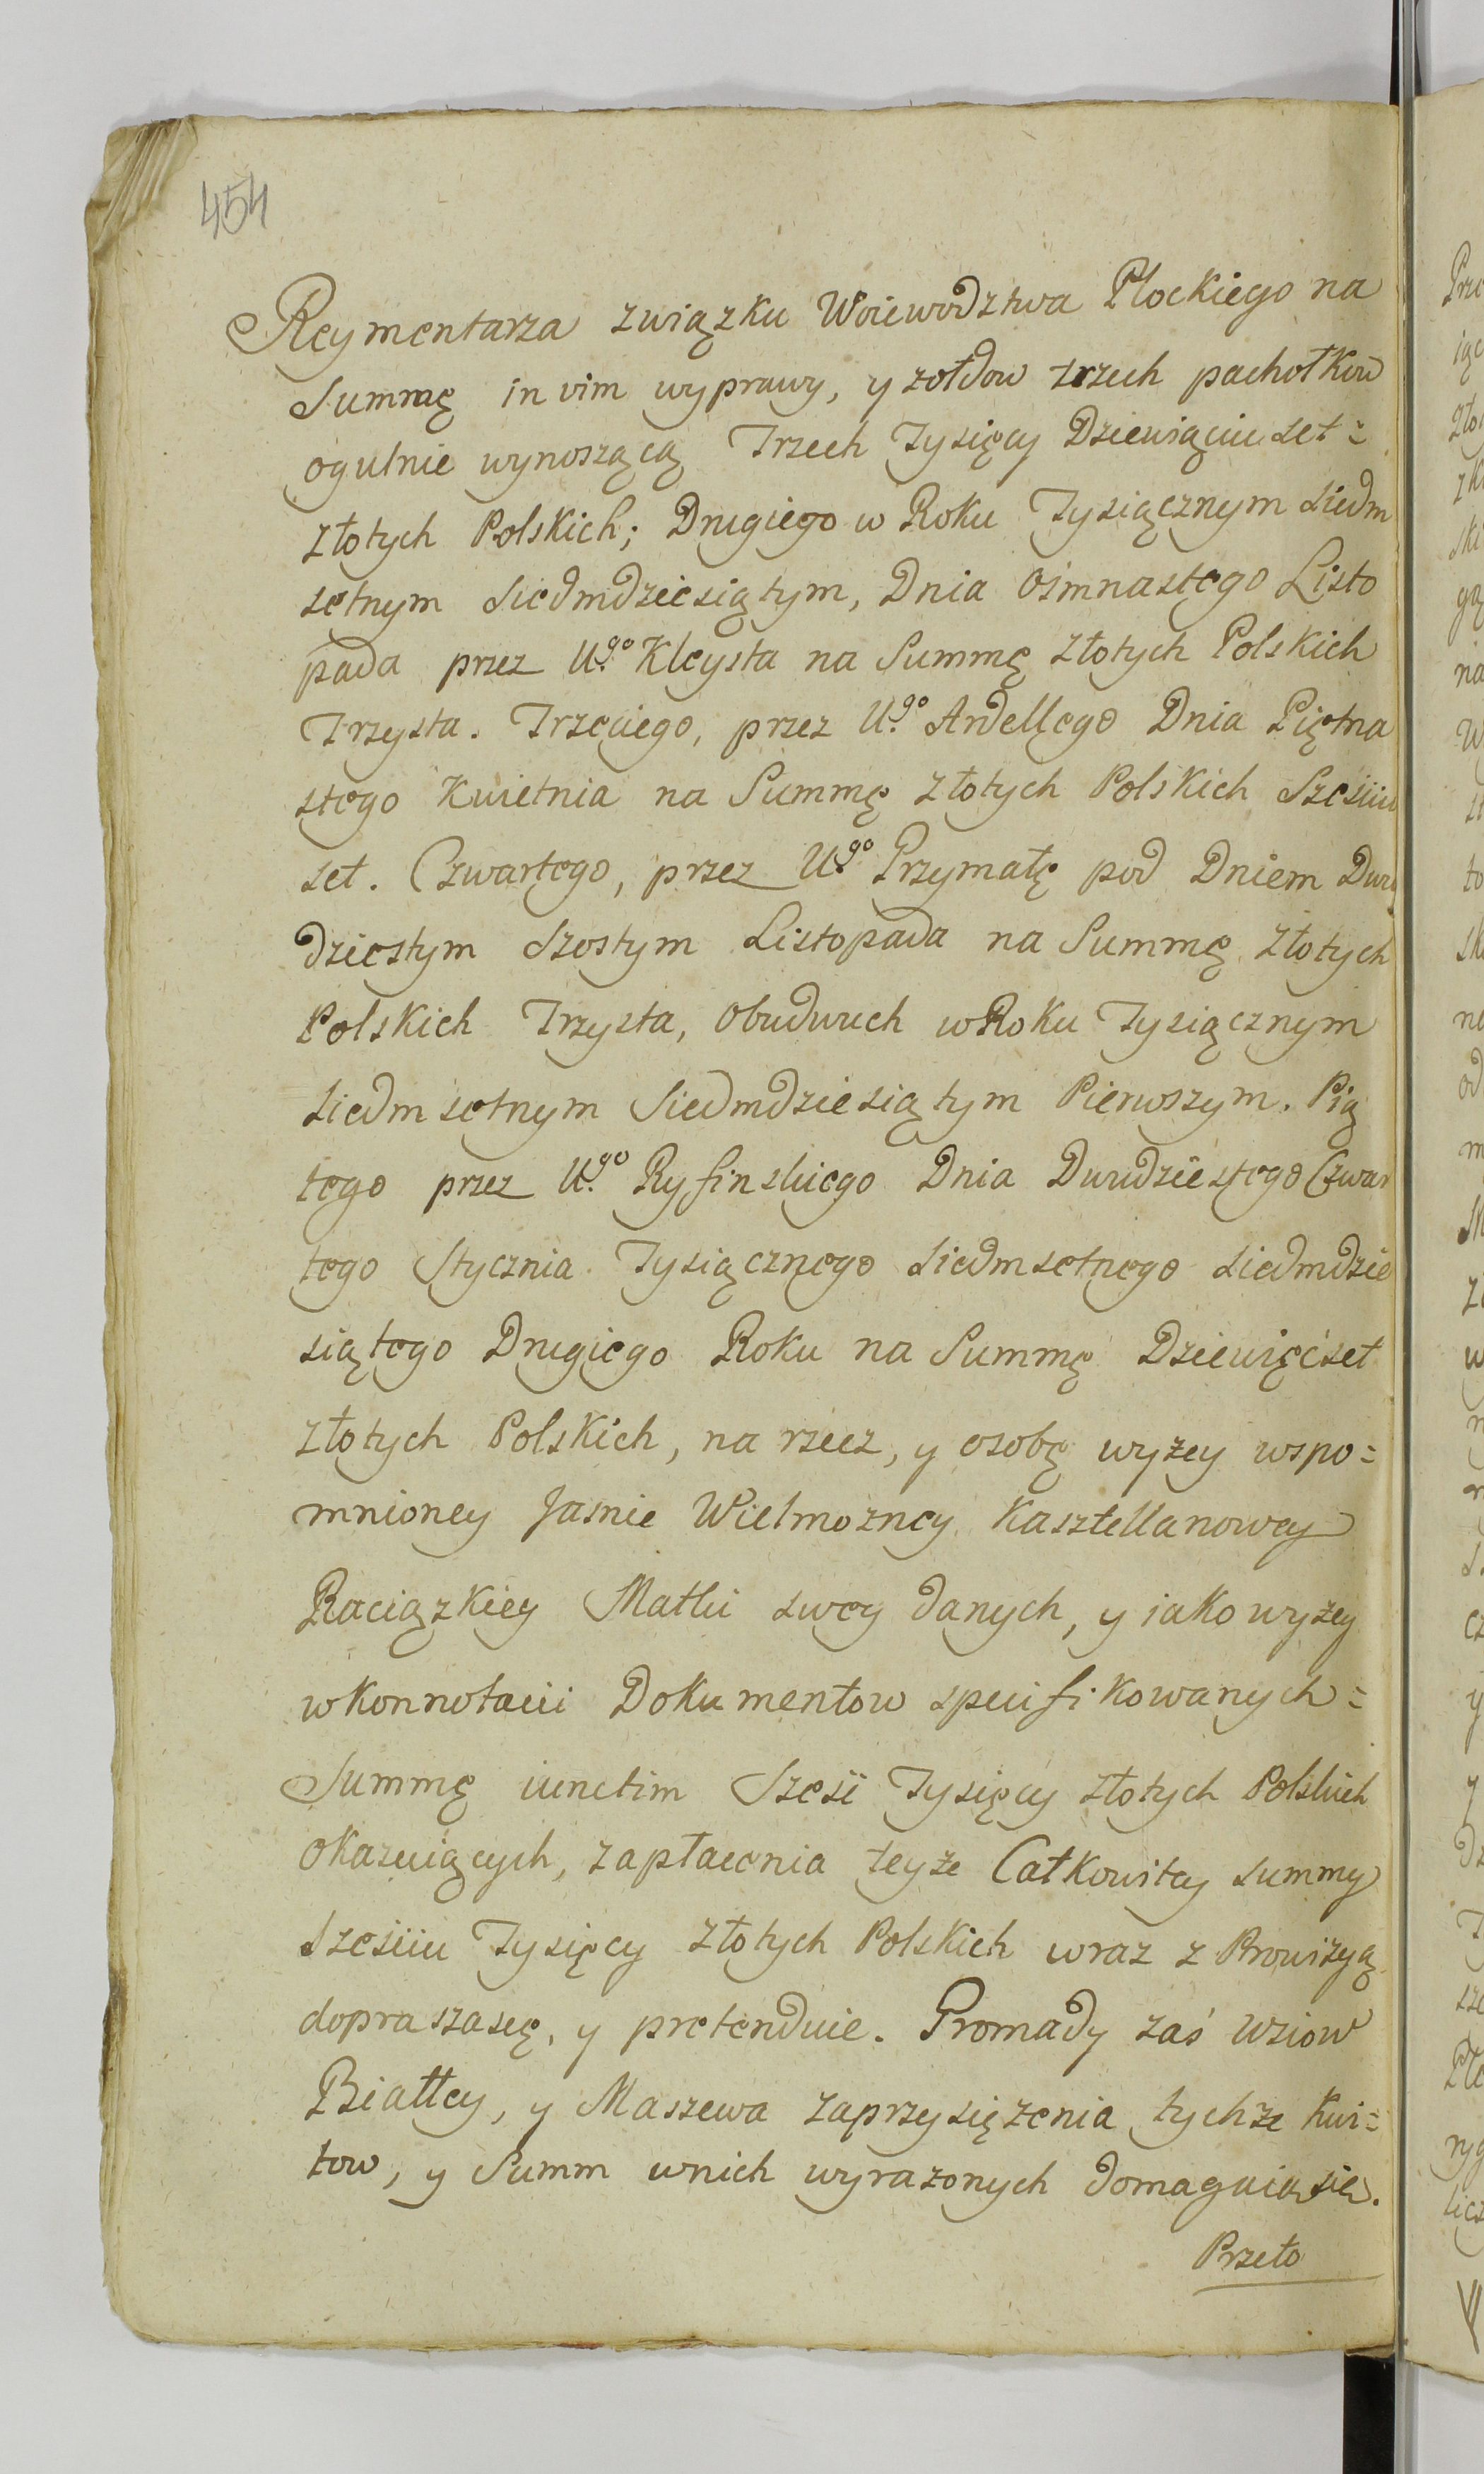 454
Reymentarza związku Woiewodztwa Płockiego na
Summę in vim wyprawy, y zołdow trzech pachołkow
ogulnie wynoszącą Trzech Tysięcy Dziewiąciu set=
złotych Polskich; Drugiego w Roku Tysiącznym siedm
setnym siedmdziesiątym, Dnia Osmnastego Listo
pada przez U.go Kleysta na Summę złotych Polskich
Trzysta. Trzeciego, przez U.go Ardellego Dnia Piętna
stego Kwietnia na Summę złotych Polskich Szesciu
set. Czwartego, przez U.go Przymałę pod Dniem Dwu
dziestym szostym Listopada na Summę złotych
Polskich Trzysta, obudwuch w Roku Tysiącznym
siedm setnym siedmdziesiątym Pierwszym. Pią
tego przez U.go Ryfinskiego Dnia Dwudziestego Czwar
tego Stycznia Tysiącznego siedmsetnego siedmdzie
siątego Drugiego Roku na Summę Dziewięćset
złotych Polskich, na rzecz, y osobę wyzey wspo=
mnioney Jasnie Wielmozney Kasztellanowey
Raciązkiey Matki swey danych, y iako wyzey
w konnotacii Dokumentow specifikowanych=
Summę iunctim Szesć Tysięcy złotych Polskich
okazuiących, zapłacenia teyże Całkowitey summy
szesciu Tysięcy złotych Polskich wraz z Prowizyą
doprasza się, y pretenduie. Gromady zaś Wsiow
Białłey, y Maszewa zaprzysiężenia tychże kwi=
tow, y Summ w nich wyrazonych domagaią się.
Przeto